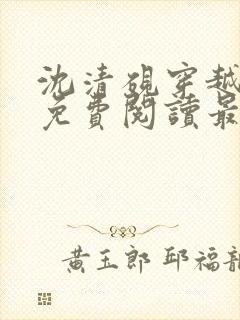 沈清硯穿越
免費閱讀最
黃玉郎 邱福龍